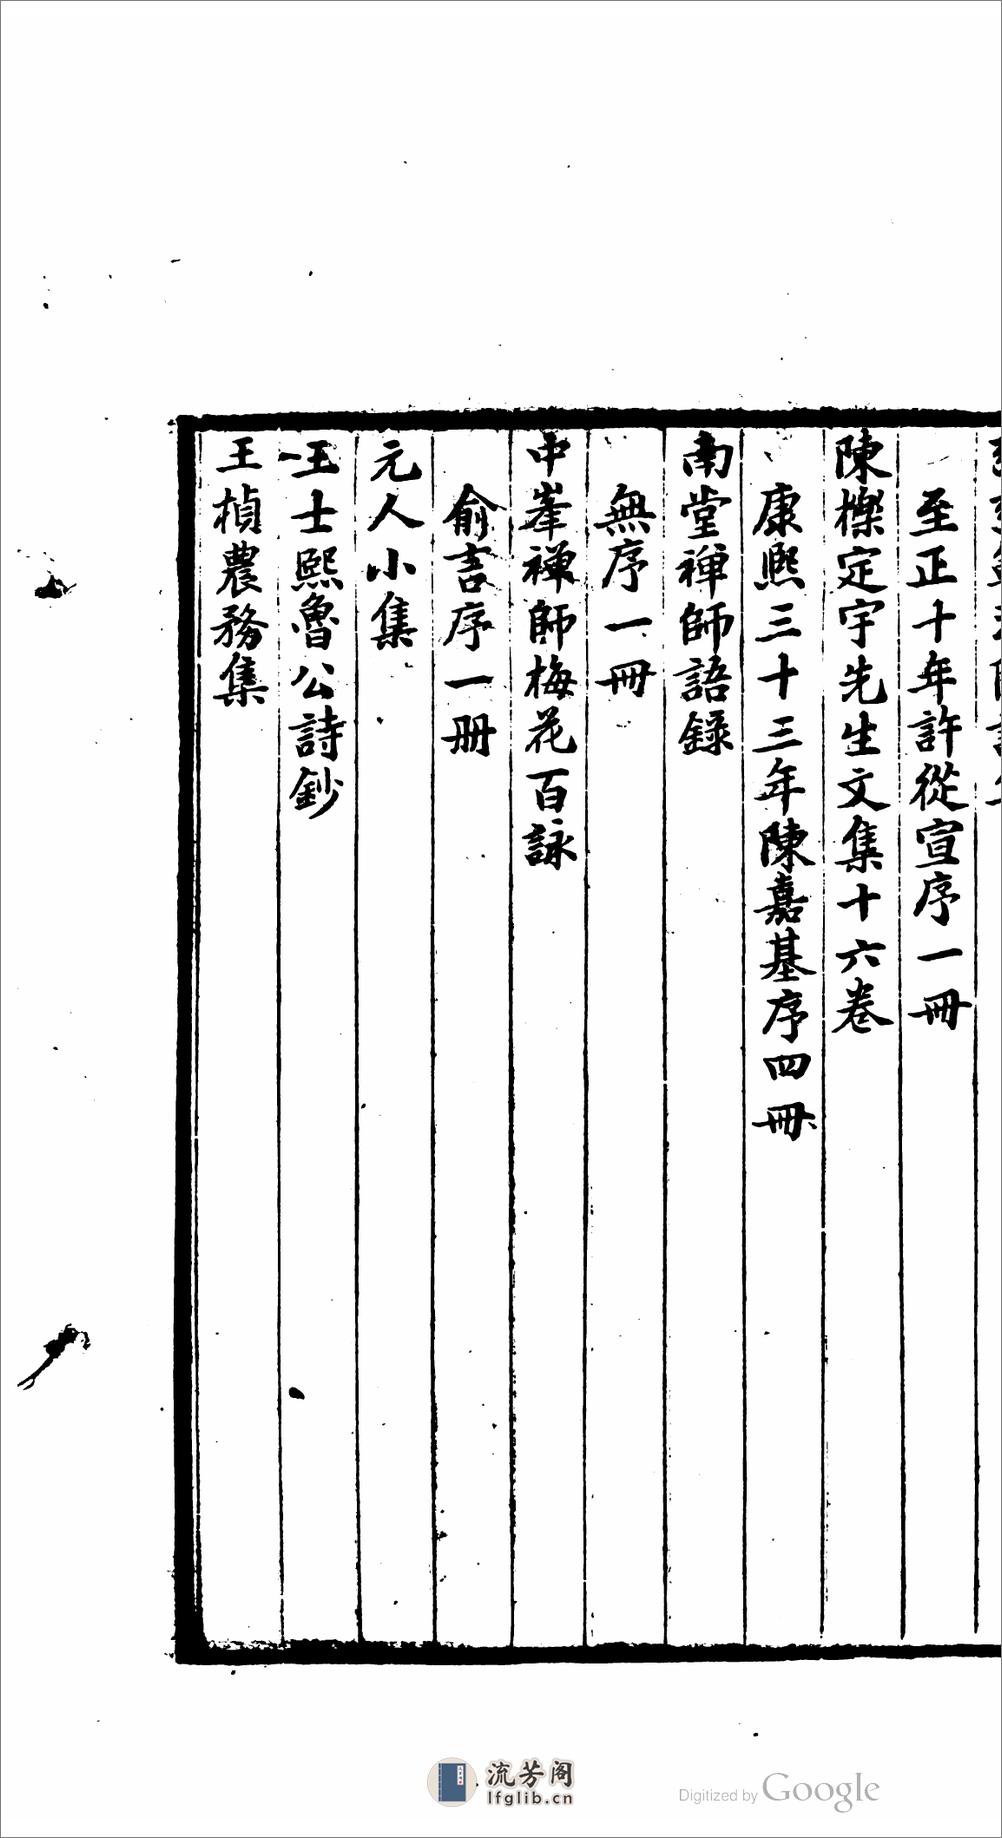 至正十年許從宣序一冊
陳櫟定宇先生文集十六卷
康熙三十三年陳嘉基序四冊
南堂禪師語錄
無序一冊
中峯禪師梅花百詠
俞言序一册
元人小集
王士熙魯公詩鈔
王楨農務集
流芳阁
lfglib.cn
Digitized by Google